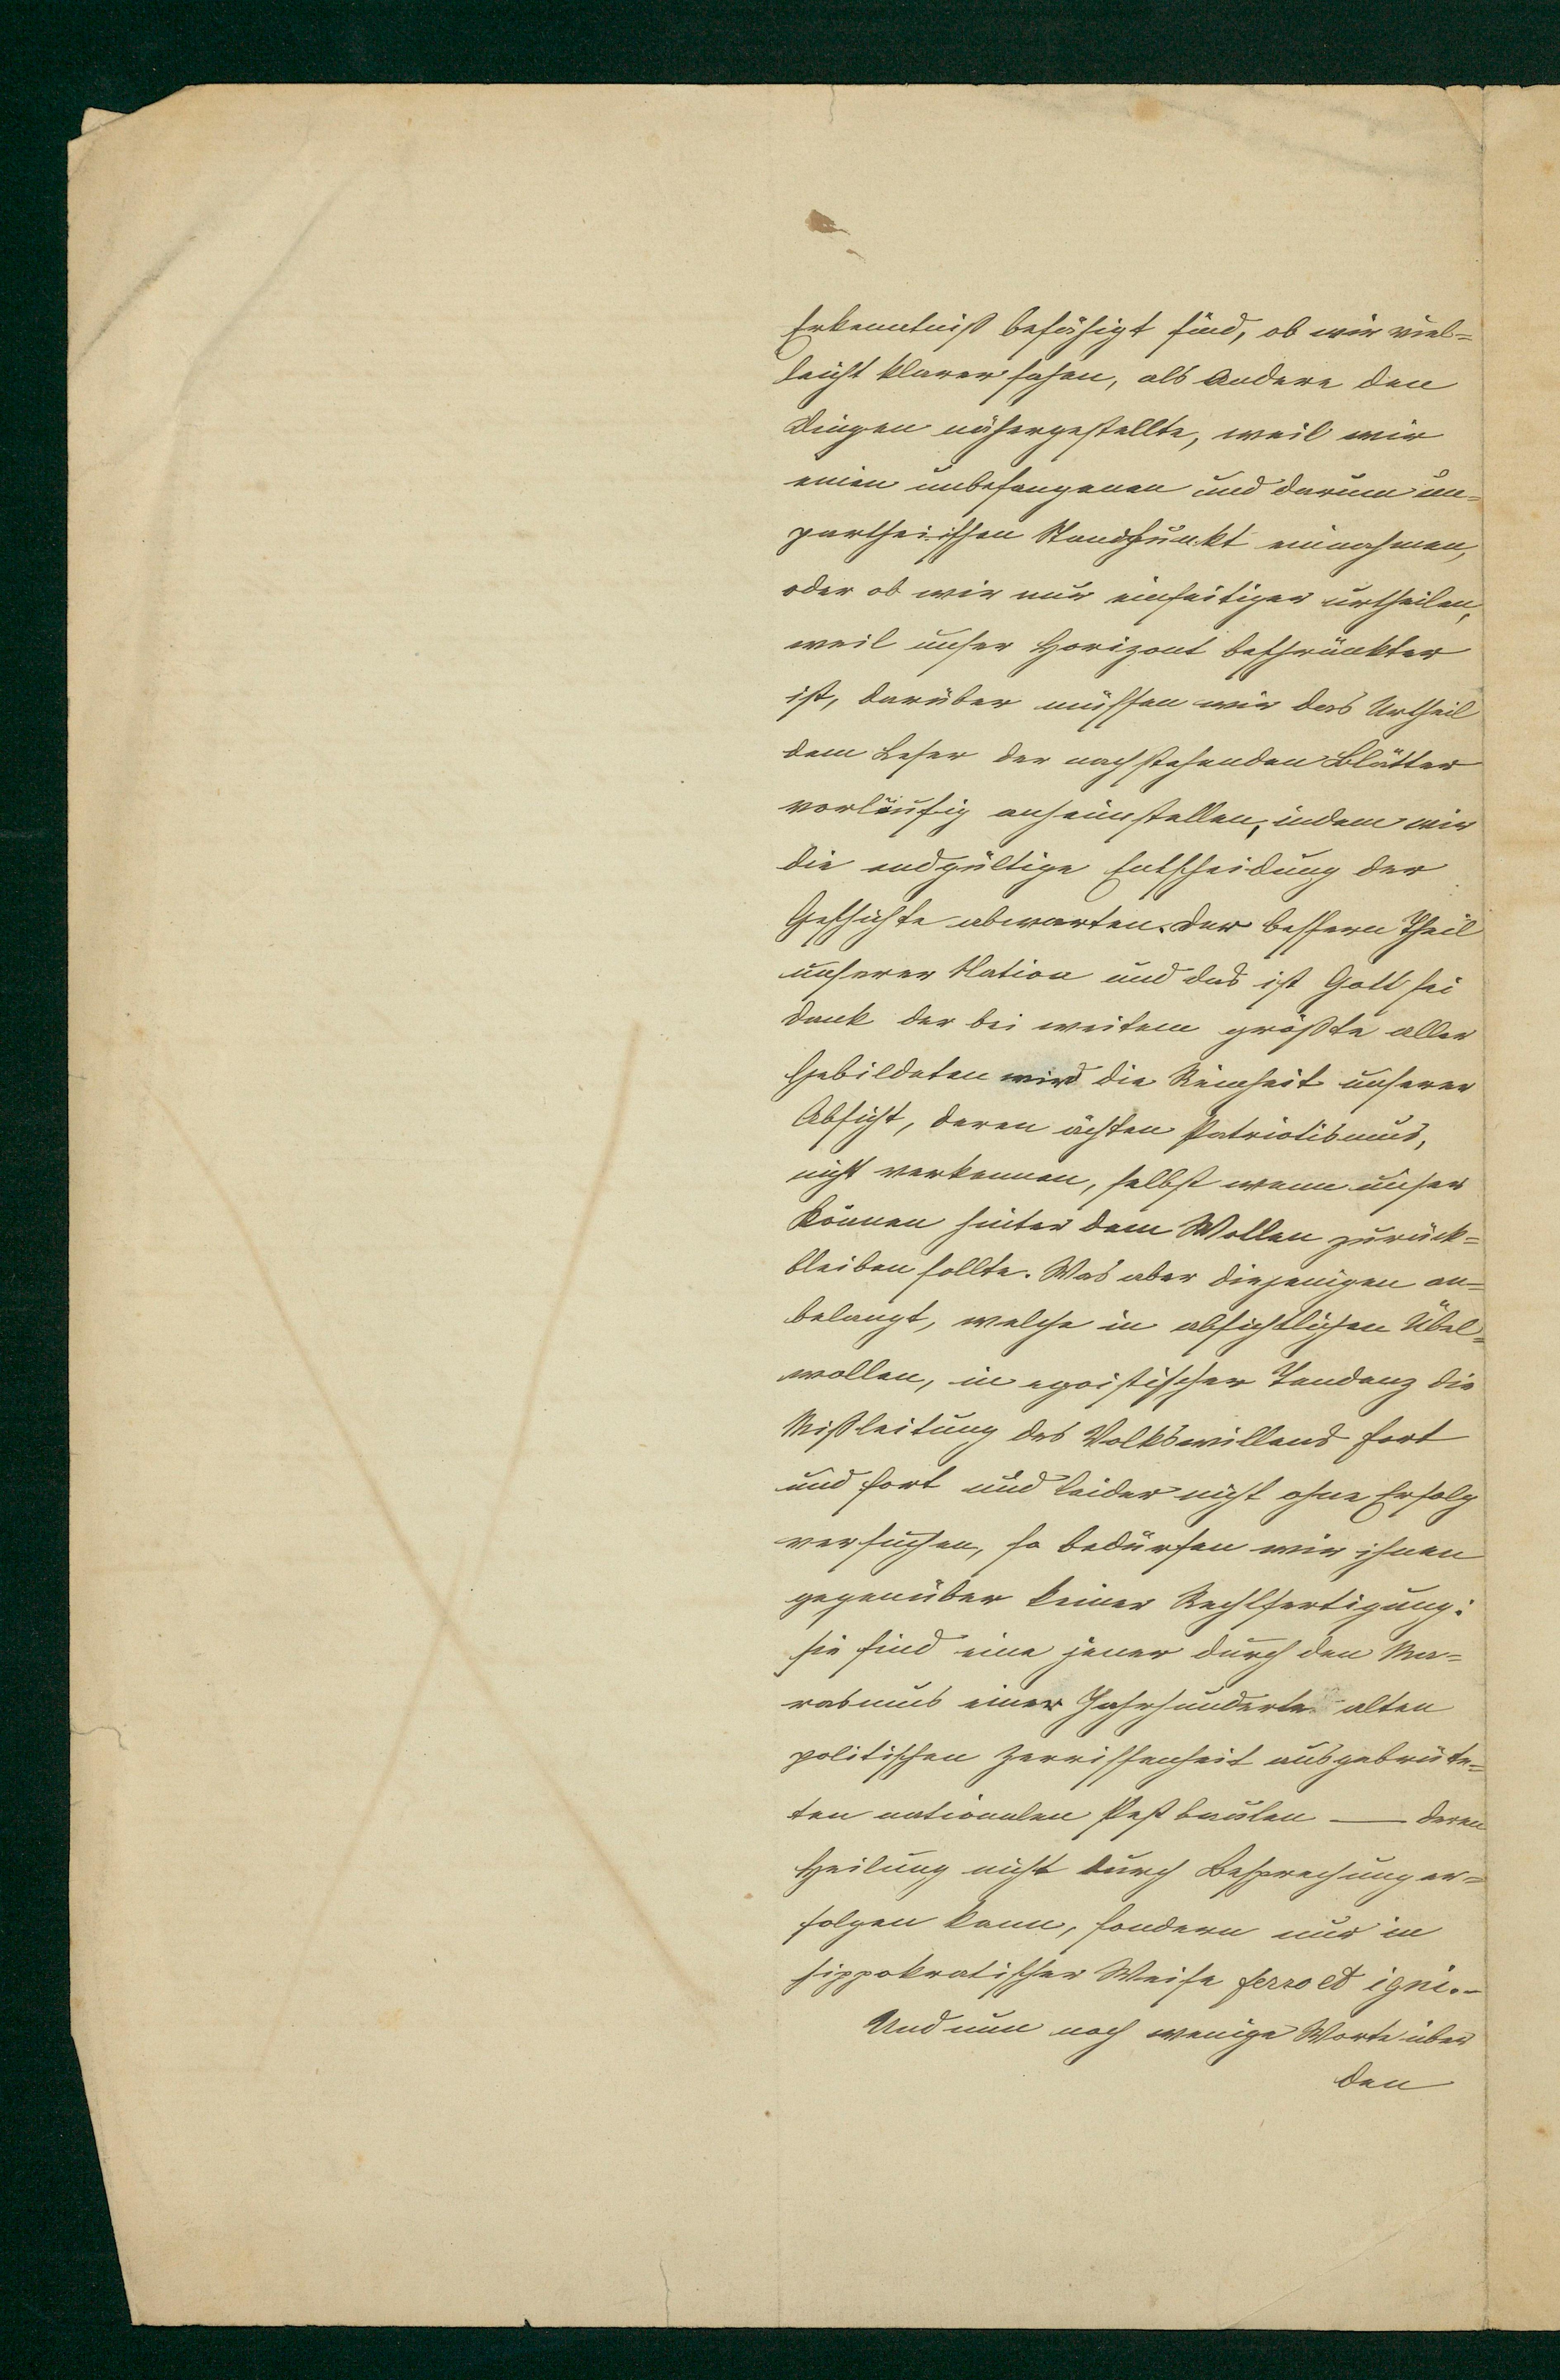 Erkenntniß befähigt sind, ob wir viel=
leicht klarer sehen, als Andere den
Dingen nähergestellte, weil wir
einen unbefangenen und darum un=
partheiischen Standpunkt einnahmen,
oder ob wir nur einseitiger urtheilen,
weil unser Horizont beschränkter
ist, darüber müssen wir das Urtheil
dem Leser der nachstehenden Blätter
vorläufig anheimstellen, indem wir
die endgültige Entscheidung der
Geschichte abwarten. Der bessere Theil
unserer Nation und das ist Gott sei
Dank der bei weitem größte aller
Gebildeten wird die Reinheit unserer
Absicht, deren ächten Patriotismus,
nicht verkennen, selbst wenn unser
Können hinter dem Wollen zurück=
bleiben sollte. Was aber diejenigen an=
belangt, welche in absichtlichen Übel=
wollen, in egoistischer Tendenz die
Mißleitung des Volkswillens fort
und fort und leider nicht ohne Erfolg
versuchen, so bedürfen wir ihnen
gegenüber keiner Rechtfertigung:
sie sind eine jener durch den Ma=
rasmus einer Jahrhunderte alten
politischen Zerrissenheit ausgebrüte=
ten nationalen Pestbeulen — deren
Heilung nicht durch Besprechung er=
folgen kann, sondern nur in
hippokratischer Weise ferro et igni.-
Und nun noch wenige Worte über
den